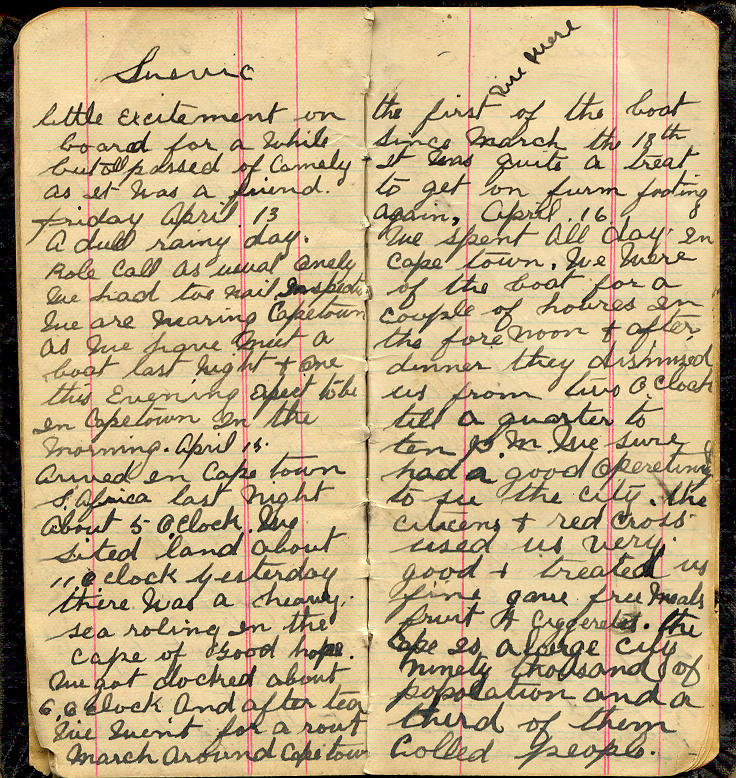 Suevic
little Excitement on
board for a While
but all passed of Comely
as it Was a friend.
Friday April. 13
A dull rainy day.
Role Call As usual Onely
We had two Inspect
We are Maring Capetown
As We a
boat last Night + One
this Evening Expect to be
in Capetown In the
Morning. April 15.
Arived in Cape town
S. Africa last Night
About 5 OClock. We
Sited land about
11 Oclock yesterday
there Was a heavy.
sea roling in the
Cape of Good hope.
We got docked about
6, OClock And after tea
We Went for a rout
March Around Capetown
We Were
the first of the boat
since March the 18th
it Was quite a treat
to get on furm footing
again, April. 16.
We spent All day in
Cape town. We Were
of the boat for a
couple of houres In
the fore Noon + after
dinner they dismised
us from two OClock
till a quarter to
ten P.M. We sure
had a good Operetunity
to see the city. the
citizens + red Cross
used us very.
good + treated us
fine gave free Meals
fruit & Ciggeretts. the
Cape Is a large City
Ninety thousand of
population and a
third of them
Colled people.